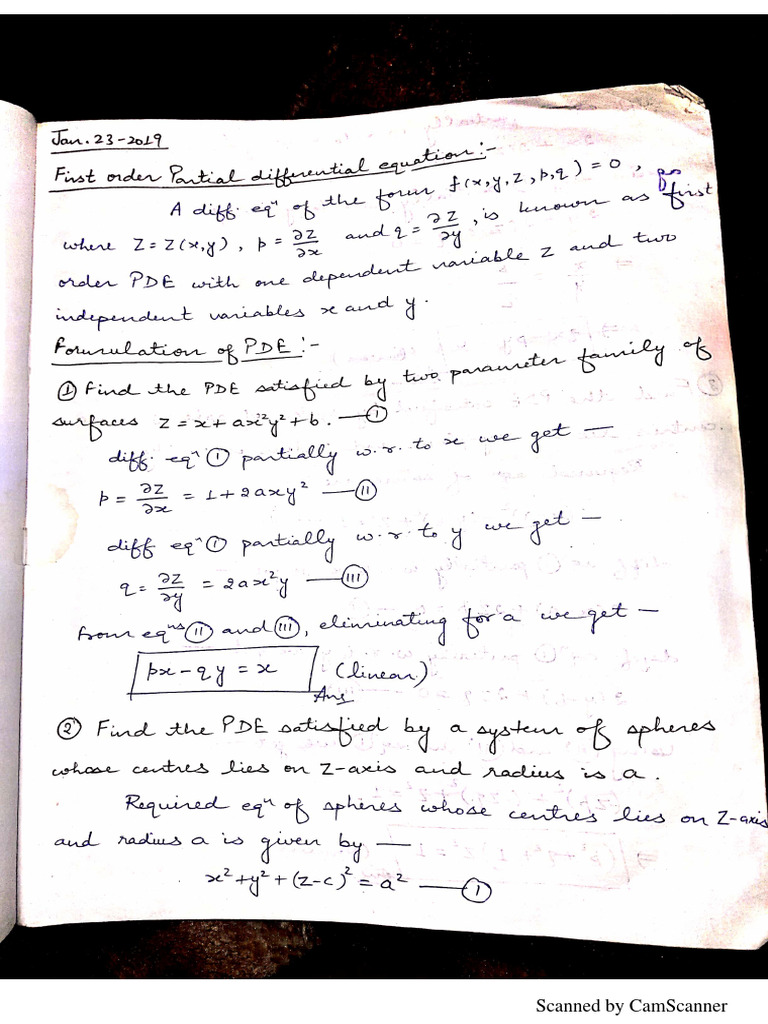 Jan. 23-2019
First order Partial differential equation:-
A diff. eqⁿ of the form f(x,y,z,p,q) = 0,
where Z = Z(x,y), p = ∂Z/∂x and q = ∂Z/∂y, is known as first
order PDE with one dependent variable z and two
independent variables x and y.
Formulation of PDE:-
① Find the PDE satisfied by two parameter family of
surfaces z = x + ax²y² + b. —Ⓘ
diff. eqⁿ Ⓘ partially w.r. to x we get —
p = ∂Z/∂x = 1 + 2axy² —Ⓘⓘ
diff eqⁿ Ⓘ partially w.r. to y we get —
q = ∂Z/∂y = 2ax²y —(III)
from eqⁿˢ (II) and (III), eliminating for a we get —
px - qy = x (linear)
Ans
② Find the PDE satisfied by a system of spheres
whose centres lies on Z-axis and radius is a.
Required eqⁿ of spheres whose centres lies on Z-axis
and radius a is given by —
x² + y² + (z-c)² = a² —Ⓘ
Scanned by CamScanner